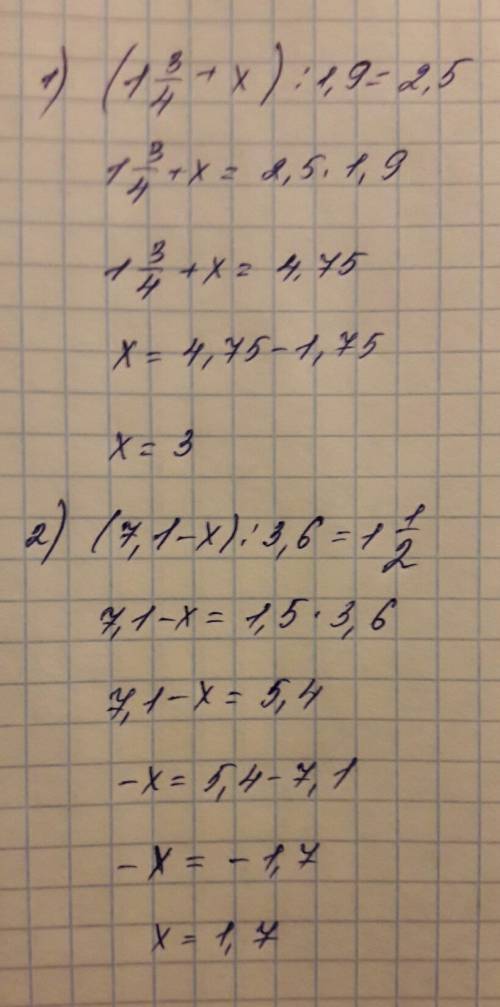 1) (1 3/4 + x) : 1,9 = 2,5
1 3/4 + x = 2,5 · 1,9
1 3/4 + x = 4,75
x = 4,75 - 1,75
x = 3
2) (7,1 - x) : 3,6 = 1 1/2
7,1 - x = 1,5 · 3,6
7,1 - x = 5,4
-x = 5,4 - 7,1
-x = -1,7
x = 1,7